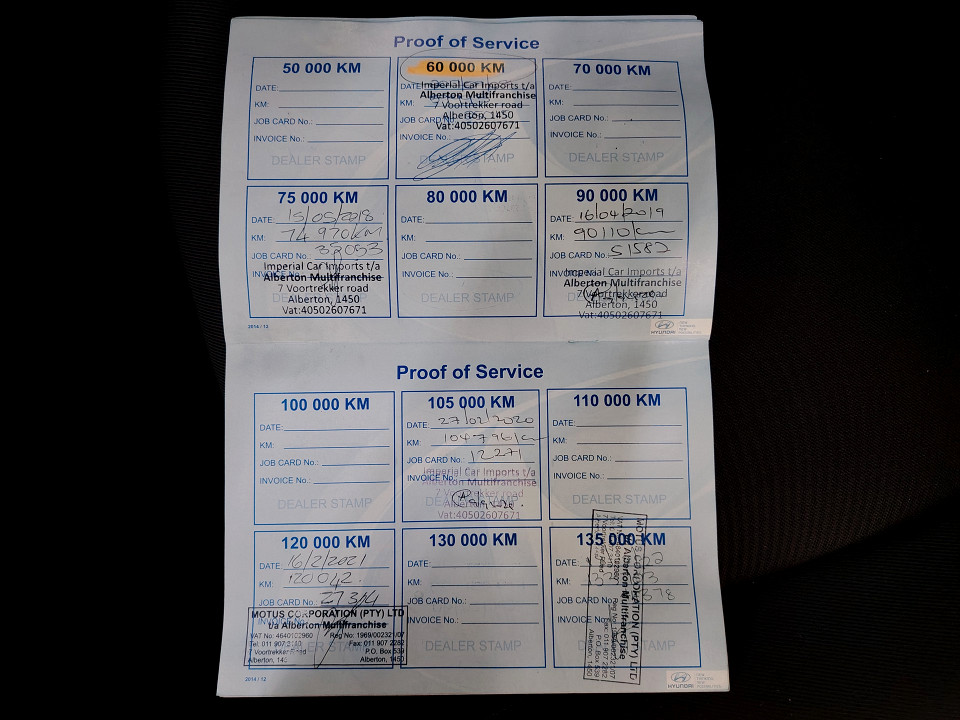 Proof of Service
50 000 KM
DATE:
KM:
JOB CARD No.:
INVOICE No.:
DEALER STAMP
60 000 KM
DATE:
Imperial Car Imports t/a
Alberton Multifranchise
KM:
7 Voortrekker road
JOB CARD No.:
Alberton, 1450
Vat:40502607671
INVOICE No.:
DEALER STAMP
70 000 KM
DATE:
KM:
JOB CARD No.:
INVOICE No.:
DEALER STAMP
75 000 KM
DATE: 15/05/2018
KM: 74 970KM
JOB CARD No.: 35053
Imperial Car Imports t/a
INVOICE No.:
Alberton Multifranchise
7 Voortrekker road
Alberton, 1450
Vat:40502607671
80 000 KM
DATE:
KM:
JOB CARD No.:
INVOICE No.:
DEALER STAMP
90 000 KM
DATE: 16/04/2019
KM: 90110km
JOB CARD No.: 51582
INVOICE No.:
Imperial Car Imports t/a
Alberton Multifranchise
7 Voortrekker road
Alberton, 1450
Vat:40502607671
2014 / 12
HYUNDAI
NEW THINKING.
NEW POSSIBILITIES.
Proof of Service
100 000 KM
DATE:
KM:
JOB CARD No.:
INVOICE No.:
DEALER STAMP
105 000 KM
DATE: 27/02/2020
KM: 104796km
JOB CARD No.: 12271
Imperial Car Imports t/a
INVOICE No.:
Alberton Multifranchise
7 Voortrekker road
Alberton, 1450
Vat:40502607671
110 000 KM
DATE:
KM:
JOB CARD No.:
INVOICE No.:
DEALER STAMP
120 000 KM
DATE: 16/2/2021
KM: 120042
JOB CARD No.: 27314
MOTUS CORPORATION (PTY) LTD
t/a Alberton Multifranchise
VAT No: Reg No: 1969/002321/07
Tel: 011 907 Fax: 011 907 2262
7 Voortrekker Road P.O. Box 539
Alberton, Alberton, 1450
130 000 KM
DATE:
KM:
JOB CARD No.:
INVOICE No.:
DEALER STAMP
135 000 KM
DATE:
KM:
JOB CARD No.:
INVOICE No.:
MOTUS CORPORATION (PTY) LTD
Alberton Multifranchise
Fax: 011 907 2262
P.O. Box 539
Alberton, 1450
2014 / 12
HYUNDAI
NEW THINKING.
NEW POSSIBILITIES.